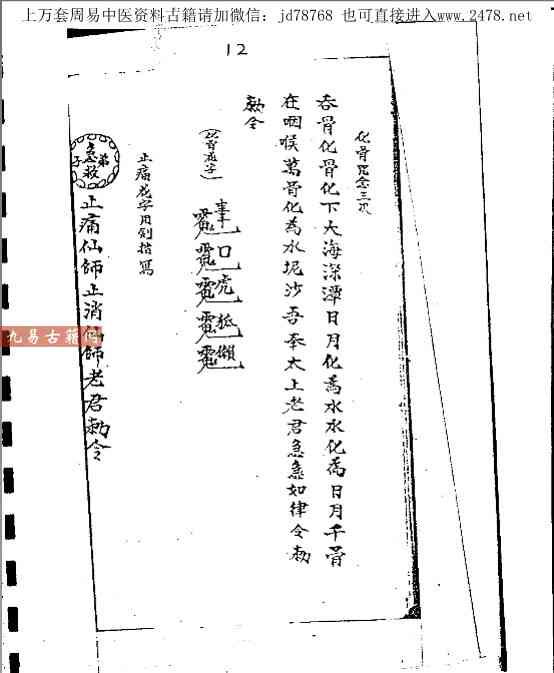 上万套周易中医资料古籍请加微信：jd78768 也可直接进入www.2478.net
12
化骨咒念三次
吞骨化骨化下大海深潭日月化為水水化為日月千骨
在咽喉萬骨化為水坭沙吾奉太上老君急急如律令勅
勅令
止痛花字用剑指寫
弟子急救
止痛仙師止消仙師老君勅令
九易古籍